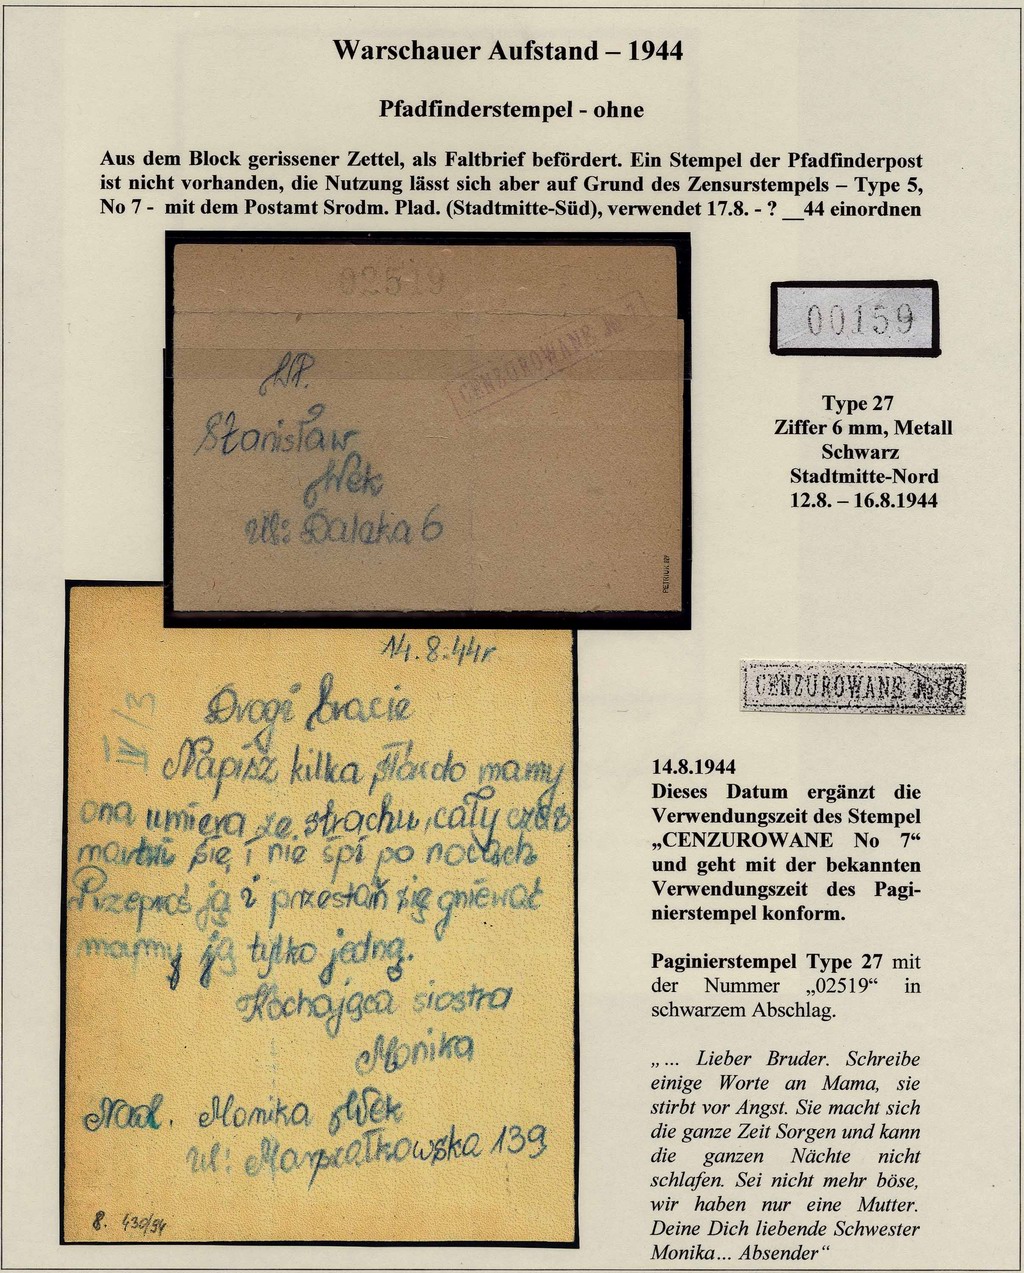 Warschauer Aufstand – 1944
Pfadfinderstempel - ohne
Aus dem Block gerissener Zettel, als Faltbrief befördert. Ein Stempel der Pfadfinderpost
ist nicht vorhanden, die Nutzung lässt sich aber auf Grund des Zensurstempels – Type 5,
No 7 - mit dem Postamt Srodm. Plad. (Stadtmitte-Süd), verwendet 17.8. - ? __44 einordnen
02519
CENZUROWANE No 7
WP.
Stanisław
Węk
ul: 6
PETRIUK
00159
Type 27
Ziffer 6 mm, Metall
Schwarz
Stadtmitte-Nord
12.8. – 16.8.1944
14.8.44r
IV/3
Drogi bracie
Napisz kilka słów do mamy
ona umiera ze strachu, cały czas
martwi się i nie śpi po nocach
Przeproś ją i przestań się gniewać
mamy ją tylko jedną.
Kochająca siostra
Monika
Nad. Monika Węk
ul: Marszałkowska 139
8. 430/94
CENZUROWANE No 7
14.8.1944
Dieses Datum ergänzt die
Verwendungszeit des Stempel
„CENZUROWANE No 7“
und geht mit der bekannten
Verwendungszeit des Pagi-
nierstempel konform.
Paginierstempel Type 27 mit
der Nummer „02519“ in
schwarzem Abschlag.
„... Lieber Bruder. Schreibe
einige Worte an Mama, sie
stirbt vor Angst. Sie macht sich
die ganze Zeit Sorgen und kann
die ganzen Nächte nicht
schlafen. Sei nicht mehr böse,
wir haben nur eine Mutter.
Deine Dich liebende Schwester
Monika... Absender“